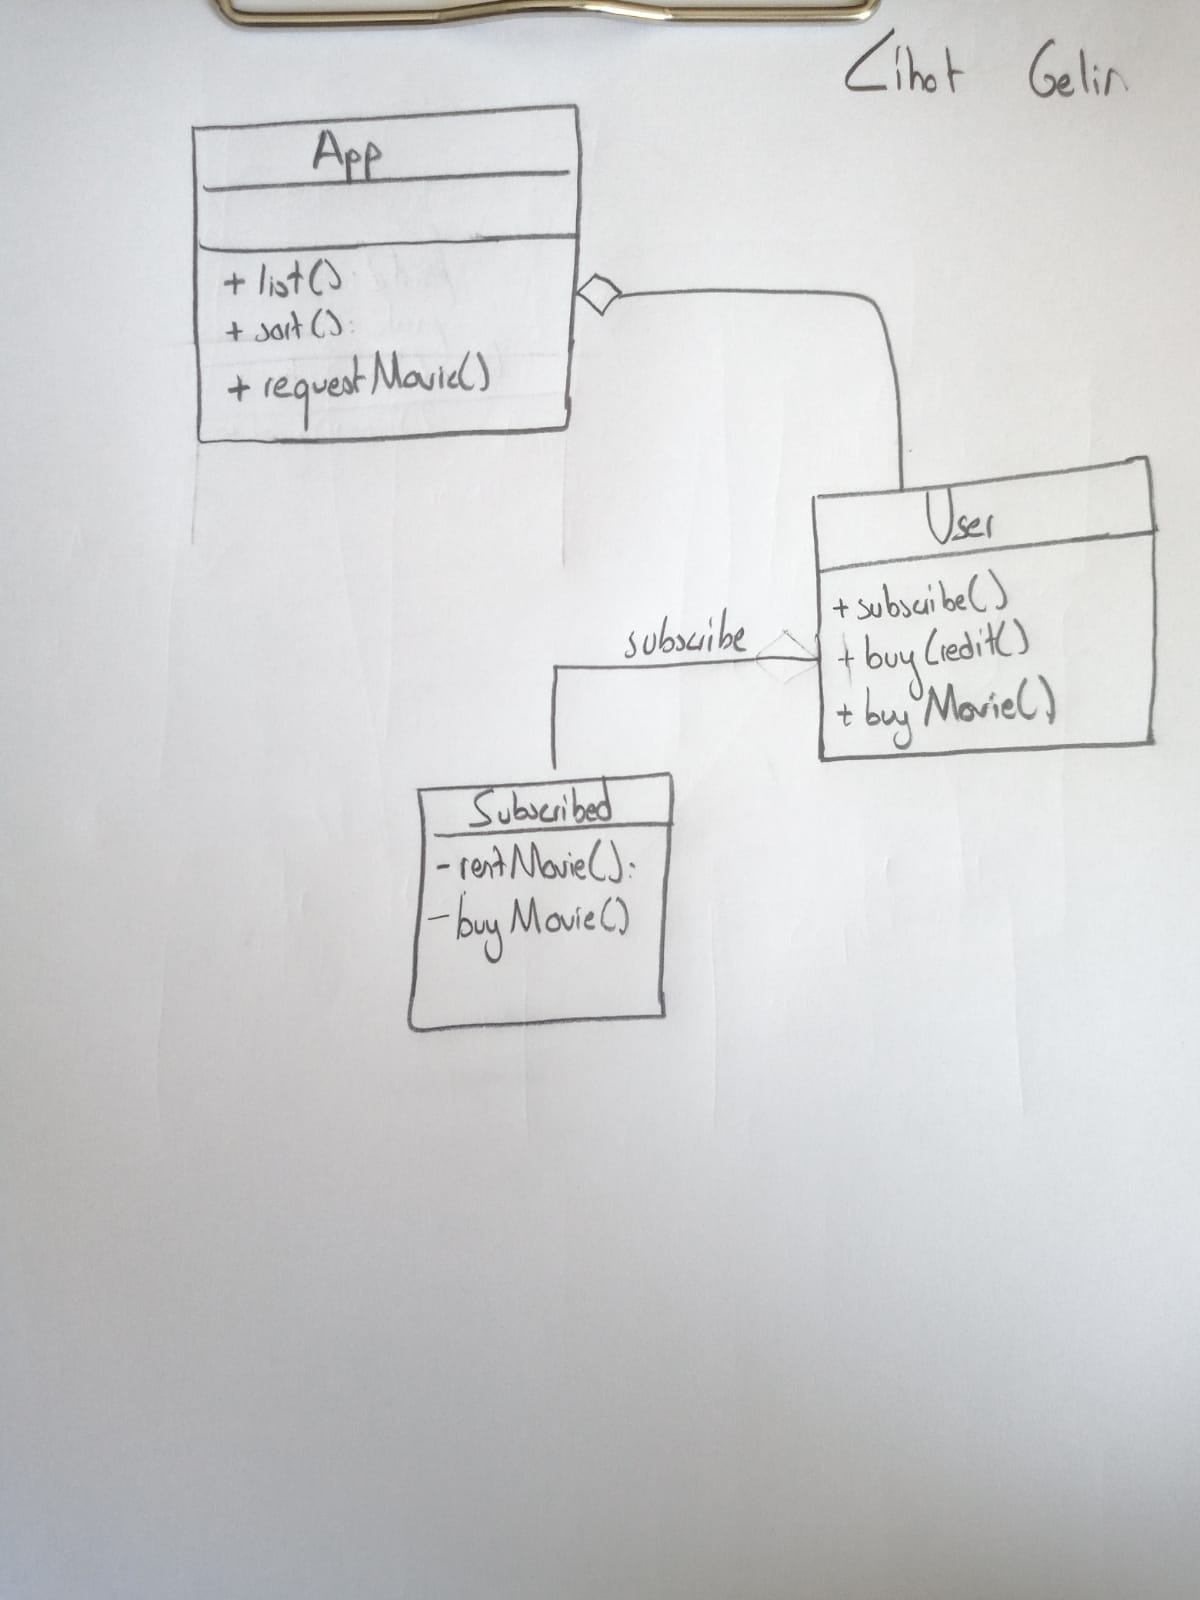 Cihat Gelin
App
+ list()
+ sort():
+ requestMovie()
User
+ subscribe()
+ buyCredit()
+ buyMovie()
subscribe
Subscribed
- rentMovie():
- buyMovie()